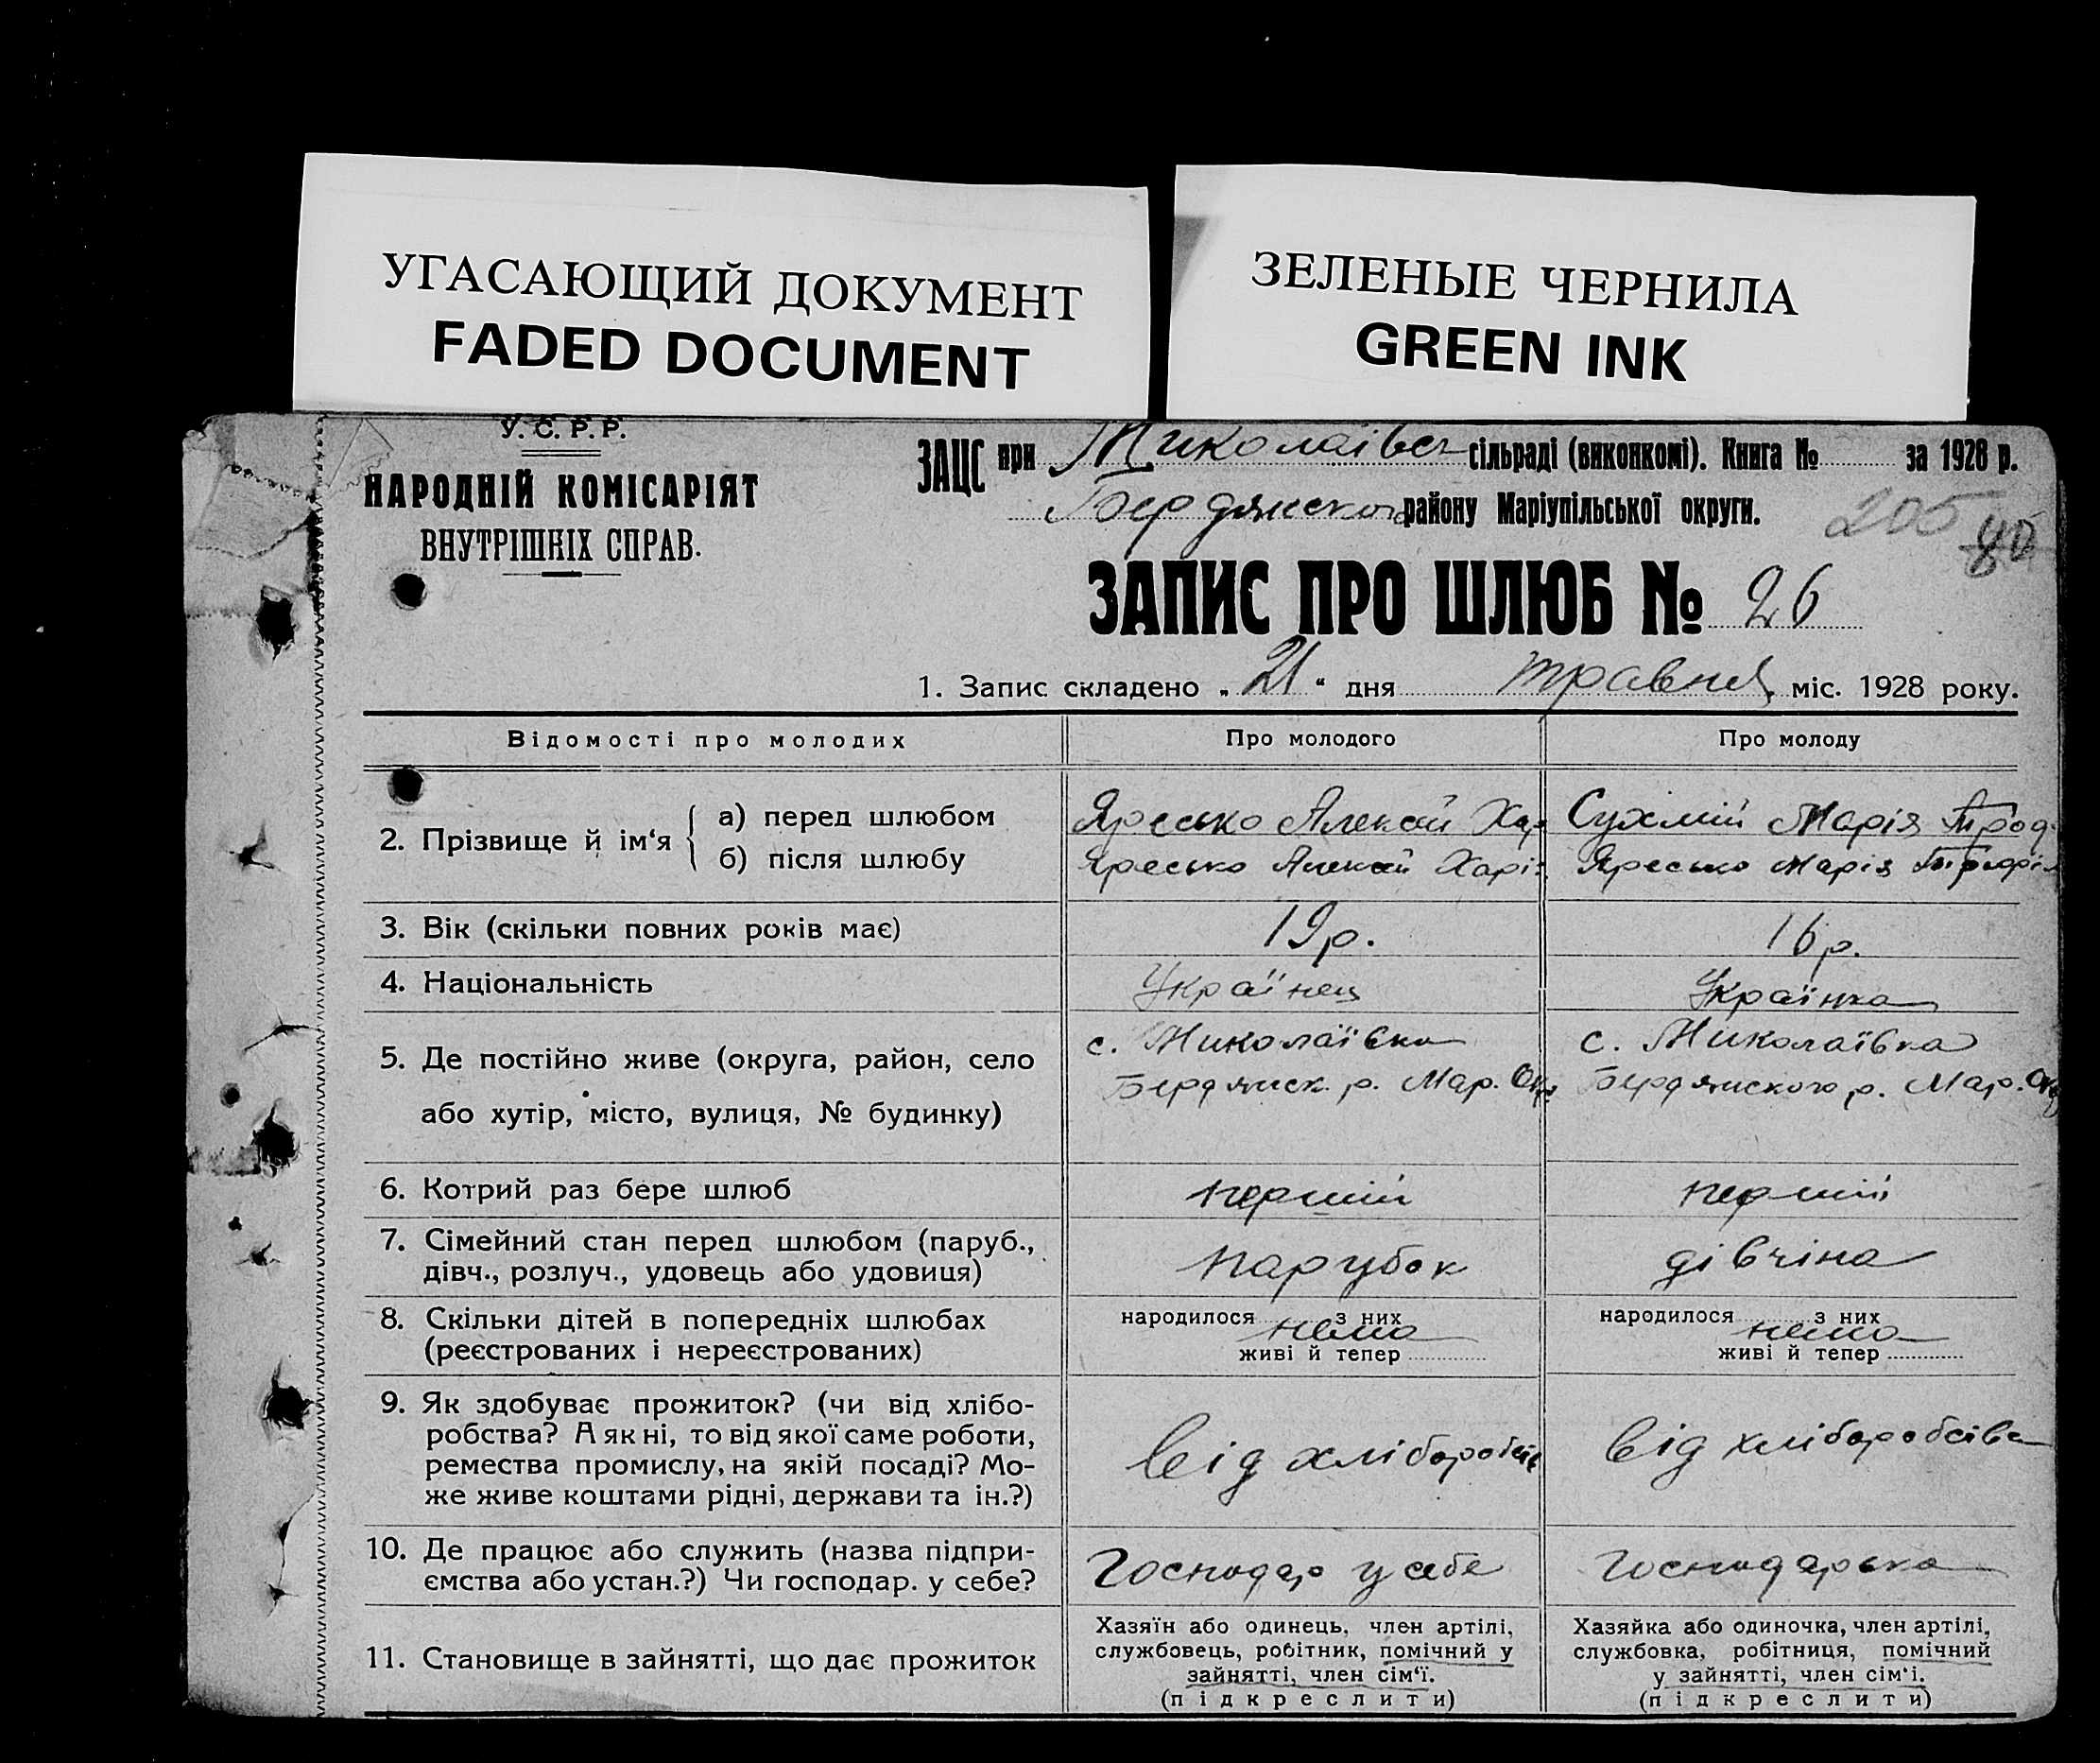 УГАСАЮЩИЙ ДОКУМЕНТ
FADED DOCUMENT
ЗЕЛЕНЫЕ ЧЕРНИЛА
GREEN INK
У. С. Р. Р.
НАРОДНІЙ КОМІСАРІЯТ
ВНУТРІШНІХ СПРАВ.
ЗАЦС при Миколаївск сільраді (виконкомі). Книга № за 1928 р.
Бердянского району Маріупільської округи.
205 80
ЗАПИС ПРО ШЛЮБ № 26
1. Запис складено „ 21 “ дня травня міс. 1928 року.
Відомості про молодих
Про молодого
Про молоду
2. Прізвище й ім‘я
а) перед шлюбом
б) після шлюбу
Яресько Алексій Хар
Яресько Алексій Харі
Сухмій Марія Троф
Яресько Марія Трофі
3. Вік (скільки повних років має)
19 р.
16 р.
4. Національність
Українец
Українка
5. Де постійно живе (округа, район, село
або хутір, місто, вулиця, № будинку)
с. Миколаївка
Бердянск. р. Мар. Окр
с. Миколаївка
Бердянского р. Мар. Окр
6. Котрий раз бере шлюб
перший
перший
7. Сімейний стан перед шлюбом (паруб.,
дівч., розлуч., удовець або удовиця)
парубок
дівчіна
8. Скільки дітей в попередніх шлюбах
(реєстрованих і нереєстрованих)
народилося з них
нема
живі й тепер
народилося з них
нема
живі й тепер
9. Як здобуває прожиток? (чи від хлібо-
робства? А як ні, то від якої саме роботи,
ремества промислу, на якій посаді? Мо-
же живе коштами рідні, держави та ін.?)
від хліборобств
від хліборобства
10. Де працює або служить (назва підпри-
ємства або устан.?) Чи господар. у себе?
Господар у себе
Господарька
11. Становище в зайнятті, що дає прожиток
Хазяїн або одинець, член артілі,
службовець, робітник, помічний у
зайнятті, член сім‘ї.
(підкреслити)
Хазяйка або одиночка, член артілі,
службовка, робітниця, помічний
у зайнятті, член сім‘і.
(підкреслити)